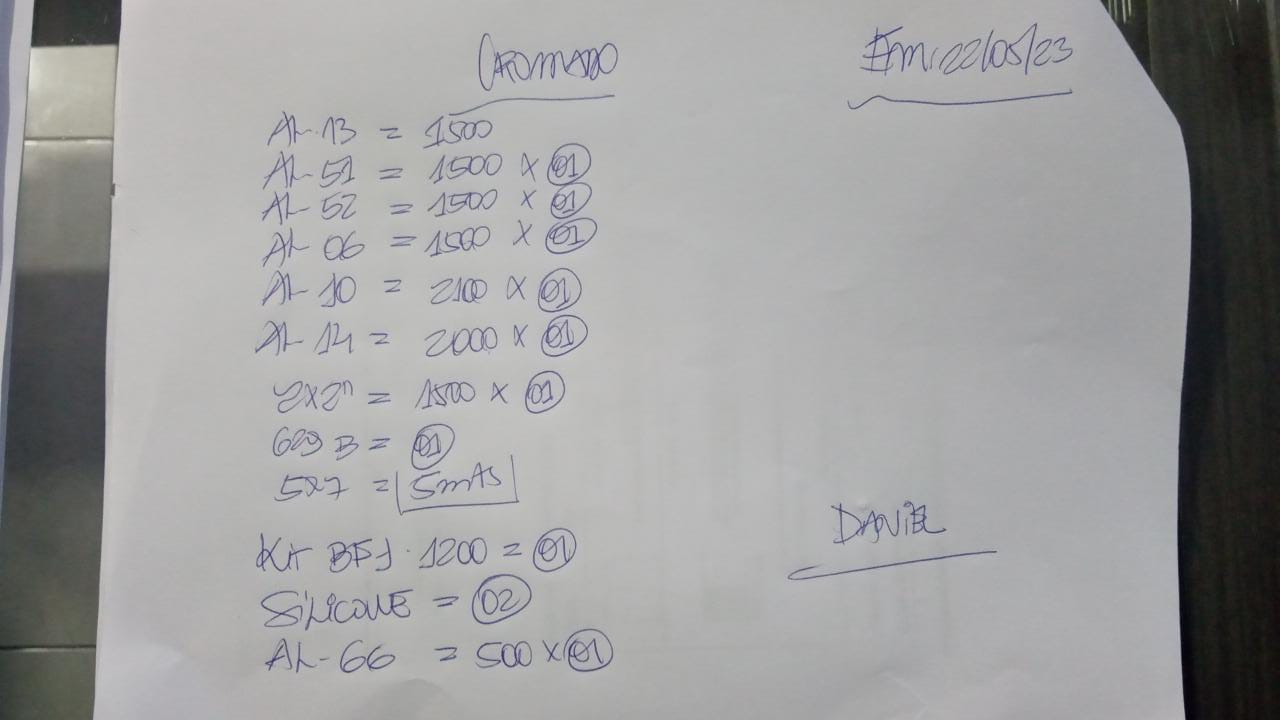 CROMADO
Em: 22/05/23
AL-13 = 1500
AL-51 = 1500 X 01
AL-52 = 1500 X 01
AL-06 = 1500 X 01
AL-10 = 2100 X 01
AL-14 = 2000 X 01
2X2" = 1500 X 01
629 B = 01
5X7 = 5mts
Kit BF1. 1200 = 01
SiLiCONE = 02
AL-66 = 500 X 01
DANiEL